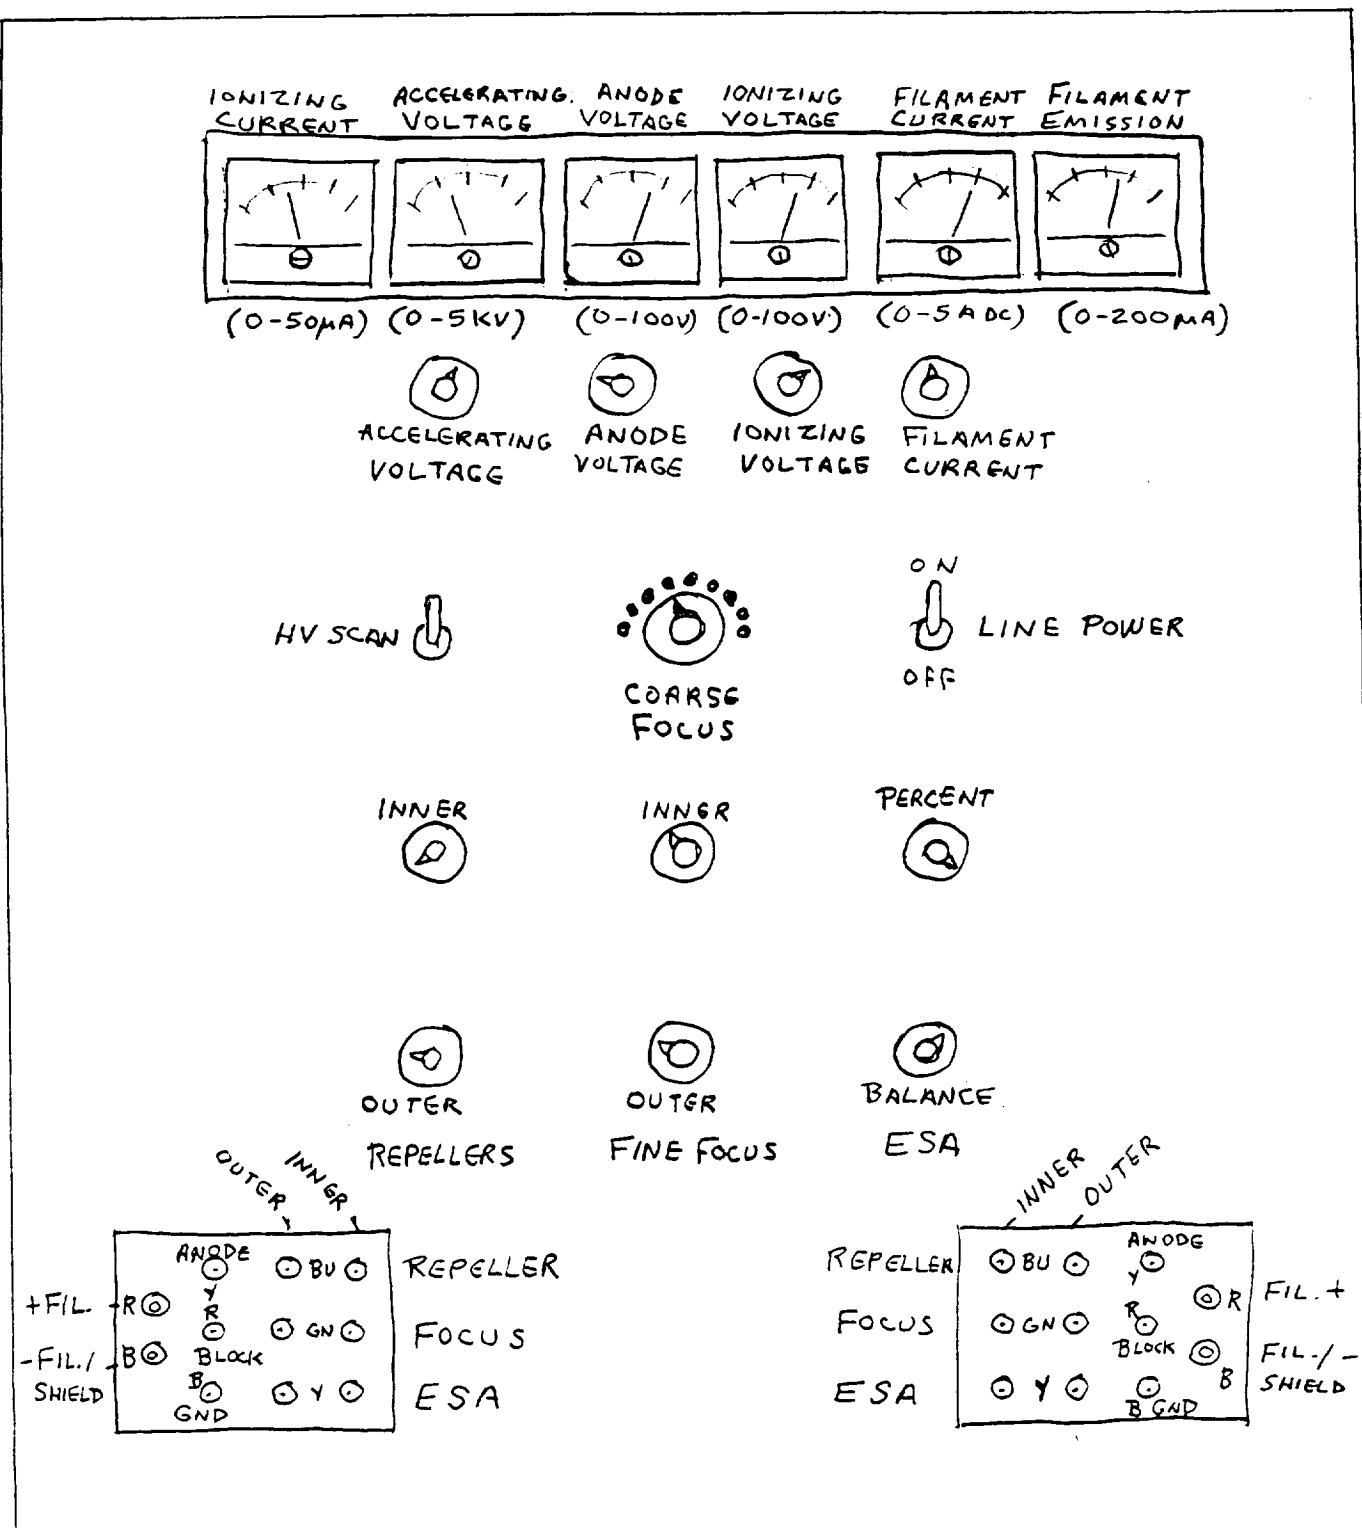 IONIZING CURRENT
ACCELERATING. VOLTAGE
ANODE VOLTAGE
IONIZING VOLTAGE
FILAMENT CURRENT
FILAMENT EMISSION
(0-50µA) (0-5KV) (0-100V) (0-100V) (0-5 A DC) (0-200MA)
ACCELERATING VOLTAGE
ANODE VOLTAGE
IONIZING VOLTAGE
FILAMENT CURRENT
HV SCAN
COARSE
FOCUS
ON
LINE POWER
OFF
INNER
INNER
PERCENT
OUTER
REPELLERS
OUTER
FINE FOCUS
BALANCE
ESA
OUTER
INNER
ANODE
Y
BU
REPELLER
+FIL.
R
R
BLOCK
GN
FOCUS
-FIL./
SHIELD
B
B
GND
Y
ESA
INNER
OUTER
REPELLER
BU
ANODE
Y
R
FIL. +
FOCUS
GN
R
BLOCK
B
FIL./-
SHIELD
ESA
Y
B GND